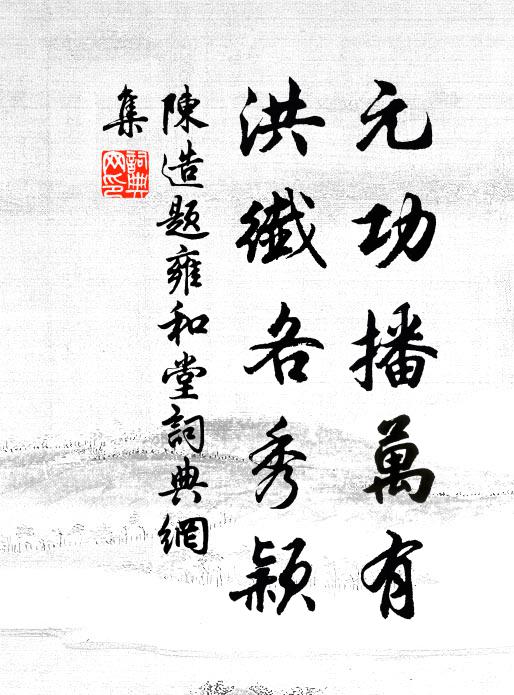 元功播萬有
洪纖各秀穎
陳造題雍和堂詞典網
集
詞典
网印